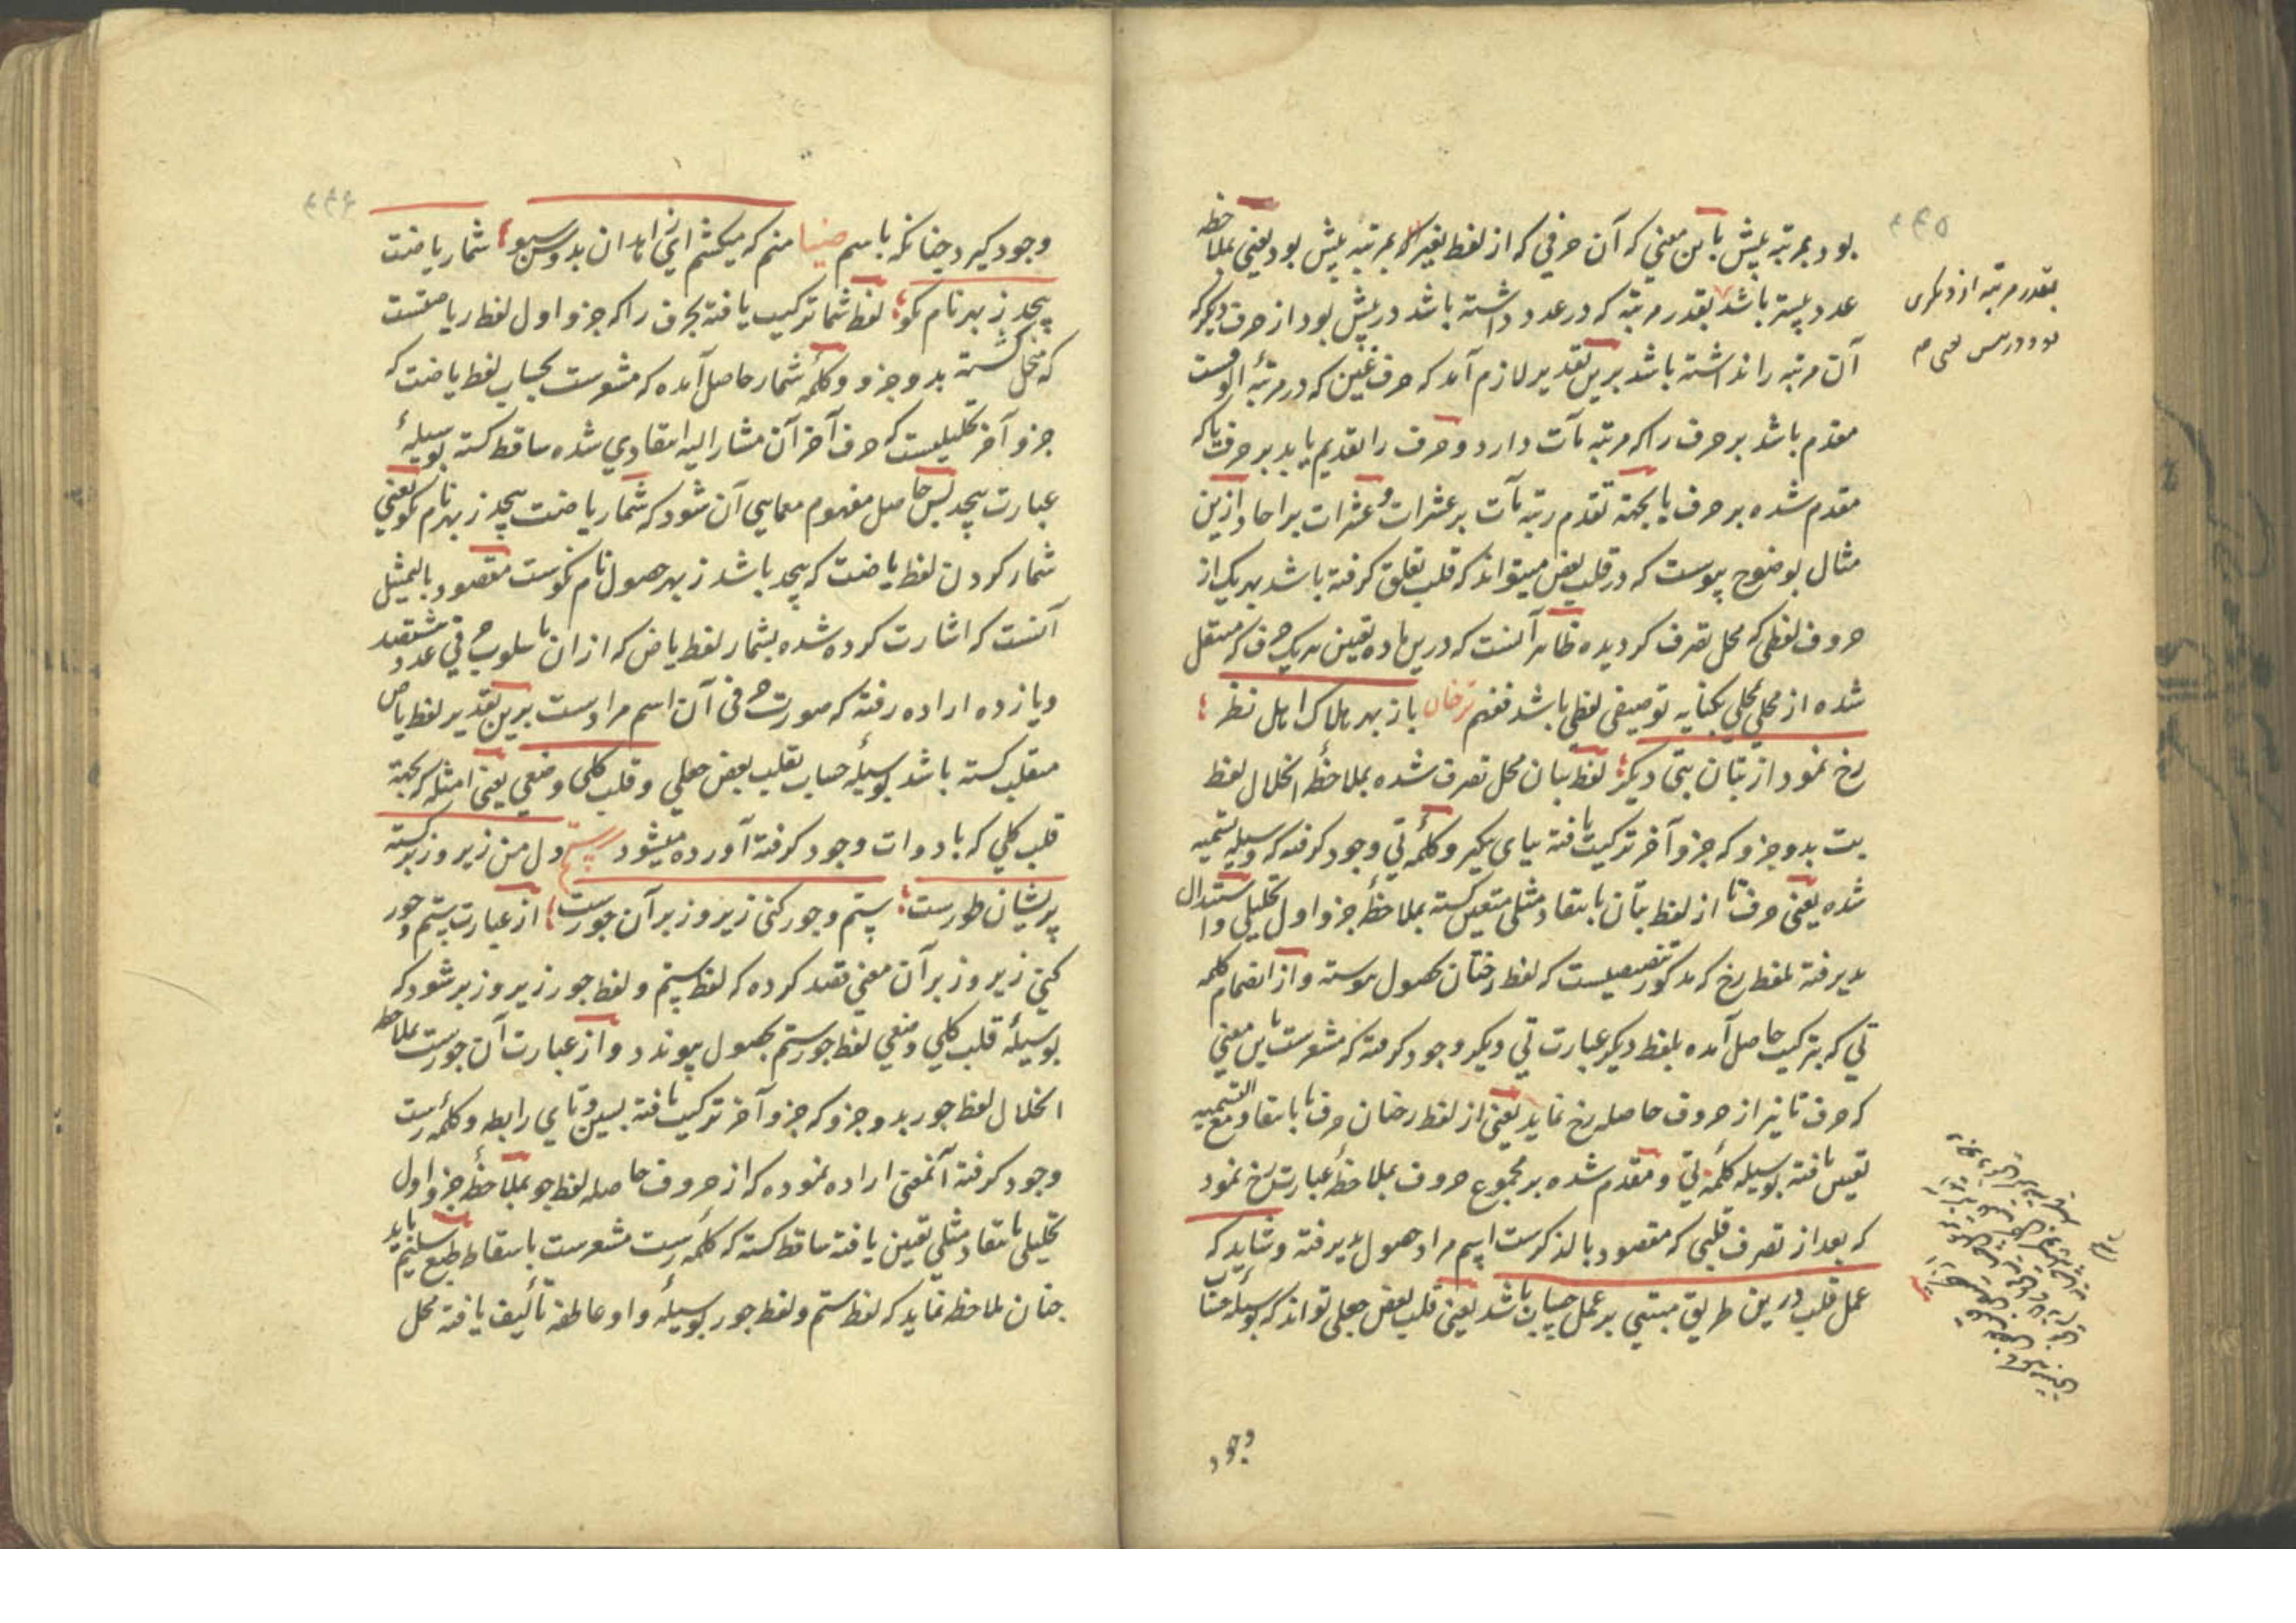 بود بمرتبه پیش باین معنی که آن حرفی که از لفظ بغیر که بمرتبه پیش بود یعنی بملاحظه
عدد پیشتر باشد بقدر مرتبه که در عدد داشته باشد در پیش بود از حرف دیگر که
آن مرتبه را نداشته باشد برین تقدیر لازم آمد که حرف غین که در مرتبهٔ الوفست
مقدم باشد بر حرف را که مرتبه مآت دارد و حرف را تقدیم یابد بر حرف یا که
مقدم شده بر حرف یا بجهة تقدم رتبه مآت بر عشرات و عشرات بر احاد و ازین
مثال بوضوح پیوست که در قلب بعض میتواند که قلب تعلق گرفته باشد بهر یک از
حروف لفظی که محل تصرف گردیده ظاهر آنست که درین ماده تعیین هر یک حرف که مستقل
شده از محلی بمحلی بکنایه توصیفی لفظی باشد فافهم ترخان باز بهر هلاک اهل نظر
رخ نمود از بتان بتی دیگر لفظ بتان محل تصرف شده بملاحظهٔ انحلال لفظ
بت بدو جزو که جزو آخر ترکیب یافته بیای یکی و کلمهٔ تی وجود گرفته که وسیله تسمیه
شده یعنی حرف تا از لفظ بتان بانتقاد مثلی متعین گشته بملاحظهٔ جزو اول تحلیلی و استبدال
پدیرفته بلفظ رخ که مذکور تنصیصیست که لفظ رختان بحصول پیوسته و از انضمام کلمه
تی که بترکیب حاصل آمده بلفظ دیگر عبارت تی دیگر وجود گرفته که مشعرست باین معنی
که حرف تا نیز از حروف حاصله رخ نماید یعنی از لفظ رخان حرف تا بانتقاد مع التسمیه
تعیین یافته بوسیله کلمهٔ تی و مقدم شده بر مجموع حروف بملاحظهٔ عبارت رخ نمود
که بعد از تصرف قلبی که مقصود بالذکرست اسم مراد حصول پدیرفته و شاید که
عمل قلب درین طریق مبتنی بر عمل حساب باشد یعنی قلب بعض جعلی تواند که بوسیلهٔ حساب
وجود
بقدر مرتبه از دیگری
بود در پیش یعنی
وجود گیرد چنانکه باسم ضیا منم که میکشم ای زاهدان بدوش سبو شما ریاضت
بیحد ز بهر نام نکو لفظ شما ترکیب یافته بحرف را که جزو اول لفظ ریاضتست
که منحل گشته بدو جزو و کلمهٔ شمار حاصل آمده که مشعرست بحساب لفظ یاضت که
جزو آخر تحلیلیست که حرف آخر آن مشار الیه انتقادی شده ساقط گشته بوسیلهٔ
عبارت بیحد پس حاصل مفهوم معمایی آن شود که شمار یاضت بیحد ز بهر نام نکو یعنی
شمار کردن لفظ یاضت که بیحد باشد ز بهر حصول نام نکوست مقصود بالتمثیل
آنست که اشارت کرده شده بشمار لفظ یاض که از ان باسلوب حرفی عدد هشتصد
و یازده اراده رفته که صورت حرفی آن اسم مرادست برین تقدیر لفظ یاض
منقلب گشته باشد بوسیلهٔ حساب بقلب بعض جعلی و قلب کلی وضعی یعنی امثله که بجهة
قلب کلی که بادوات وجود گرفته آورده میشود رستم دل من زیر و زبر گشته
پریشان طورست ستم و جور کنی زیر و زبر آن جورست از عبارت ستم و جور
کنی زیر و زبر آن معنی قصد کرده که لفظ ستم و لفظ جور زیر و زبر شود که
بوسیلهٔ قلب کلی وضعی لفظ جور ستم بحصول پیوندد و از عبارت آن جورست بملاحظه
انحلال لفظ جور بدو جزو که جزو آخر ترکیب یافته بسین و تای رابطه و کلمهٔ رست
وجود گرفته آنمعنی اراده نموده که از حروف حاصله لفظ جو بملاحظهٔ جزو اول
تحلیلی بانتقاد مثلی تعیین یافته ساقط گشته که کلمه رست مشعرست باسقاط طبع سلیم باید
چنان ملاحظه نماید که لفظ ستم و لفظ جور بوسیلهٔ واو عاطفه تألیف یافته محل